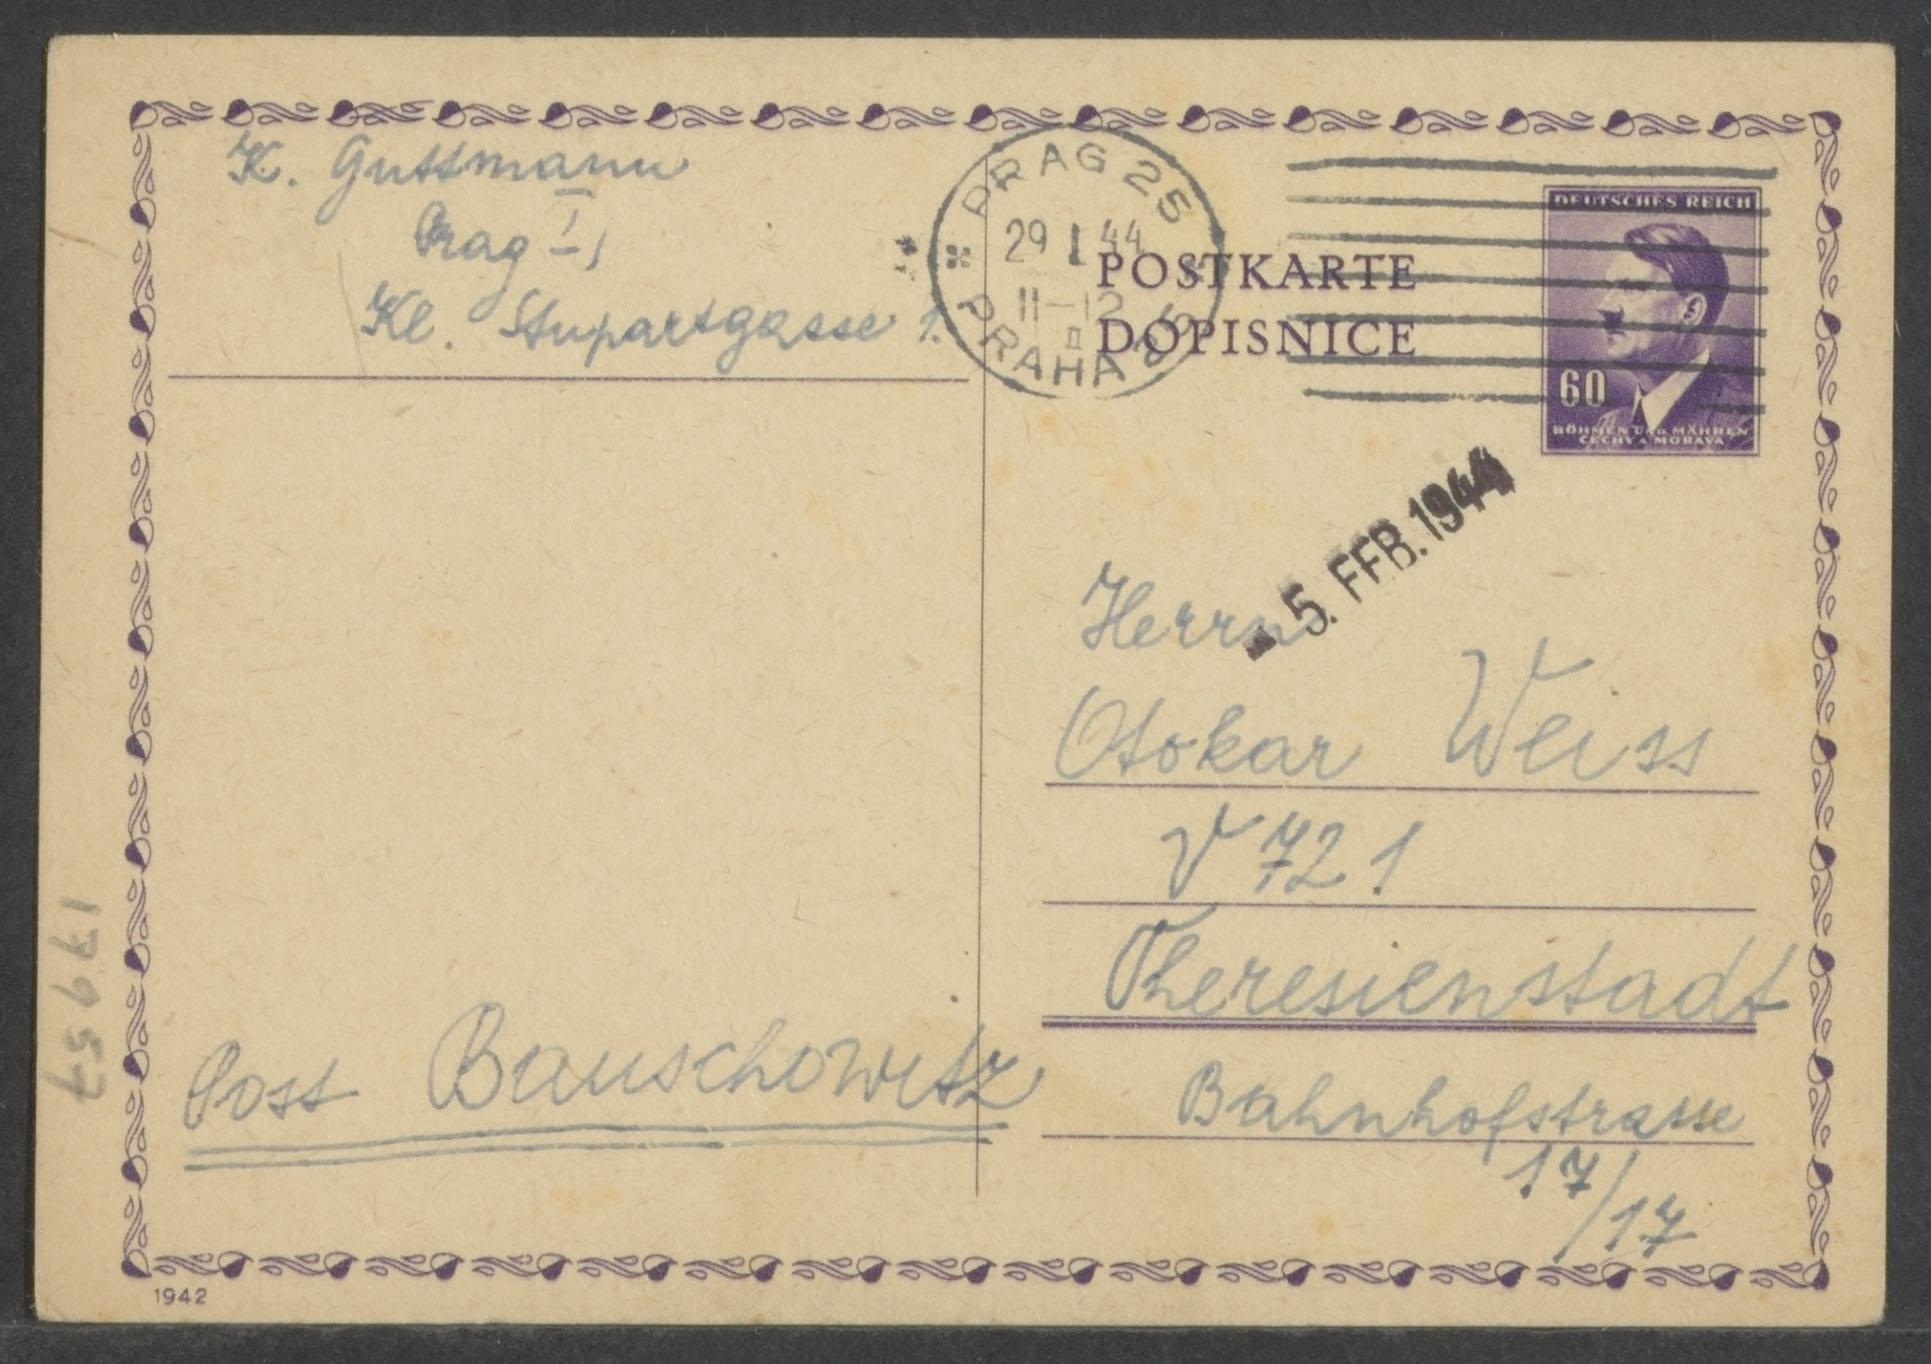 K. Guttmann
Prag I,
Kl. Stupartgasse 1.
PRAG 25
29 I 44
11-12
II
PRAHA 25
POSTKARTE
DOPISNICE
DEUTSCHES REICH
60
BÖHMEN UND MÄHREN
ČECHY A MORAVA
- 5. FEB. 1944
Herrn
Otokar Weiss
V 721
Theresienstadt
Bahnhofstrasse
17/17
Post Bauschowitz
17957
1942